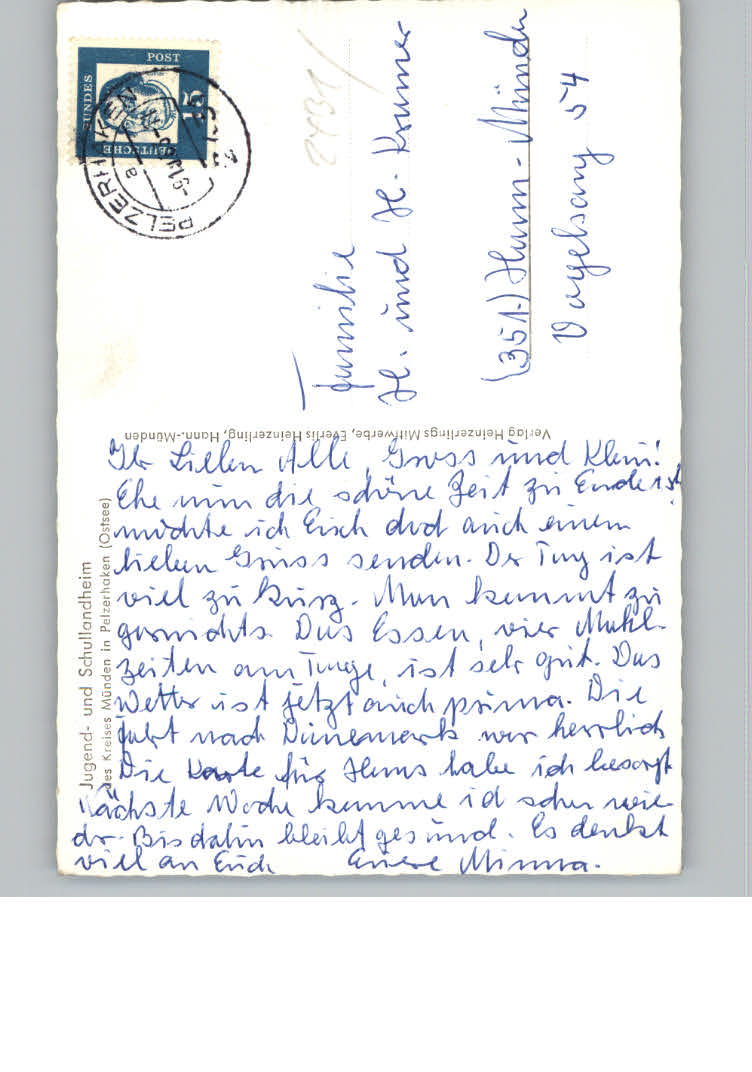 Jugend- und Schullandheim
des Kreises Münden in Pelzerhaken (Ostsee)
Ihr Lieben Alle, Gross und Klein!
Ehe nun die schöne Zeit zu Ende ist
möchte ich Euch doch auch einen
lieben Gruss senden. Der Tag ist
viel zu kurz. Man kommt zu
garnichts. Das Essen, vier Mahl-
zeiten am Tage, ist sehr gut. Das
Wetter ist jetzt auch prima. Die
Fahrt nach Dänemark war herrlich
Die Karte für Hans habe ich besorgt
Nächste Woche komme ich schon wie-
der. Bis dahin bleibt gesund. Es denkt
viel an Euch Eure Minna.
Verlag Heinzerlings Mittwerbe, Everlis Heinzerling, Hann.-Münden
DEUTSCHE
BUNDES
POST
15
PELZERHAKEN
a
2431
Familie
H. und H. Kramer
(351.) Hann-Münden
Vogelsang 54